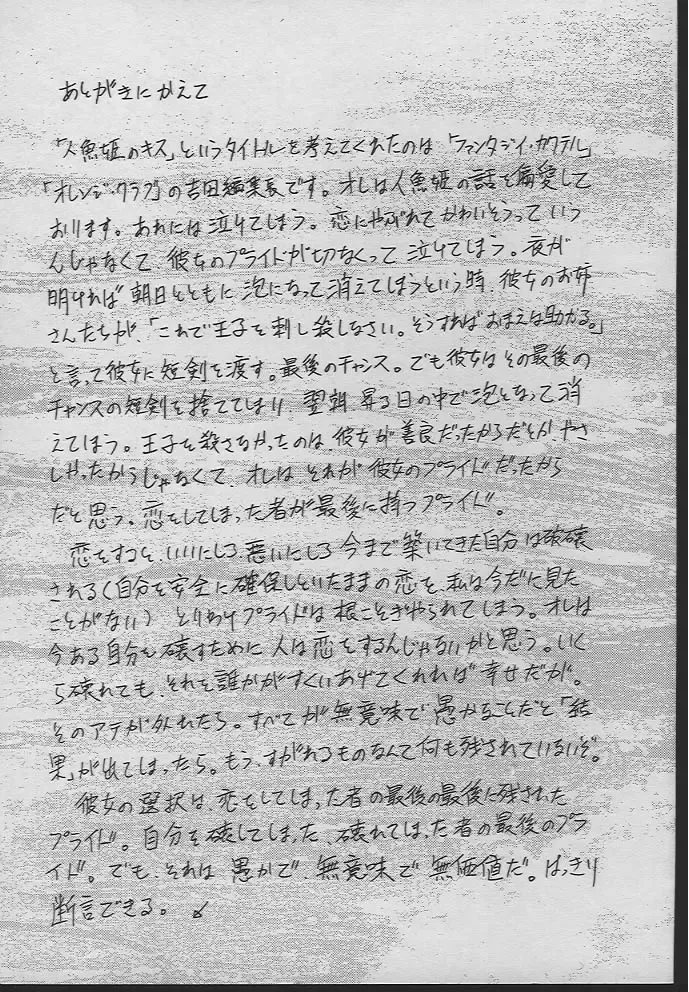 あとがきにかえて
「人魚姫のキス」というタイトルを考えてくれたのは「ファンタジィ・カクテル」
「オレンジ・クラブ」の吉田編集長です。オレは人魚姫の話を偏愛して
おります。あれには泣けてしまう。恋にやぶれてかわいそうっていう
んじゃなくて、彼女のプライドが切なくって泣けてしまう。夜が
明ければ朝日とともに泡になって消えてしまうという時、彼女のお姉
さんたちが、「これで王子を刺し殺しなさい。そうすればおまえは助かる。」
と言って彼女に短剣を渡す。最後のチャンス。でも彼女はその最後の
チャンスの短剣を捨ててしまい、翌朝、昇る日の中で泡となって消
えてしまう。王子を殺さなかったのは、彼女が善良だったからだとか、やさ
しかったからじゃなくて、オレは、それが彼女のプライドだったから
だと思う。恋をしてしまった者が最後に持つプライド。
恋をすると、いいにしろ悪いにしろ今まで築いてきた自分は破壊
される(自分を安全に確保しといたままの恋を、私は今だに見た
ことがない)とりわけプライドは根こそぎやられてしまう。オレは
今ある自分を壊すために人は恋をするんじゃないかと思う。いく
ら壊れても、それを誰かがすくいあげてくれれば幸せだが。
そのアテが外れたら。すべてが無意味で愚かなことだと「結
果」が出てしまったら。もう、すがれるものなんて何も残されていないぞ。
彼女の選択は、恋をしてしまった者の最後の最後に残された
プライド。自分を壊してしまった、壊れてしまった者の最後のプラ
イド。でも、それは愚かで、無意味で無価値だ。はっきり
断言できる。